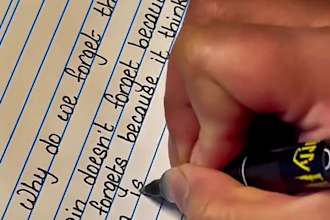 Why do we forget th
in doesn't forget becau
forgets because it think
is